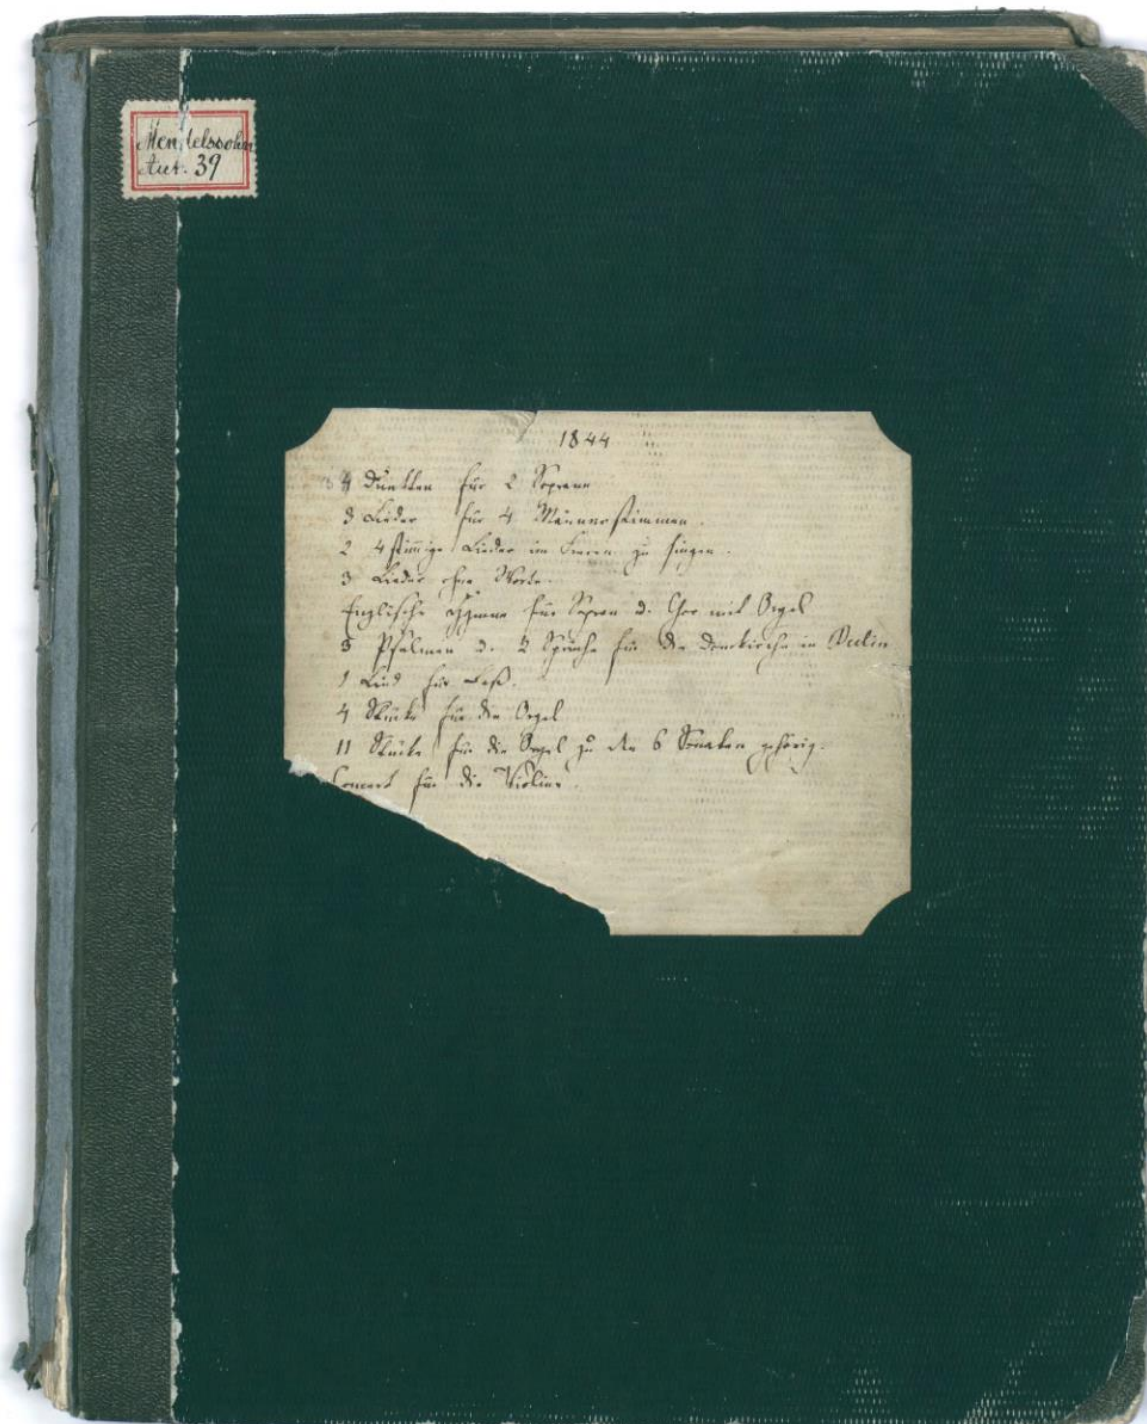 Mendelssohn
Aut. 39
1844
4 Duetten für 2 Soprane
3 Lieder für 4 Männerstimmen.
2 4stimmige Lieder im Freien zu singen.
3 Lieder ohne Worte.
Englische Hymne für Sopran u. Chor mit Orgel
3 Psalmen u. 2 Sprüche für die Domkirche in Berlin
1 Lied für Baß.
4 Stücke für die Orgel
11 Stücke für die Orgel zu den 6 Sonaten gehörig.
Concert für die Violine.